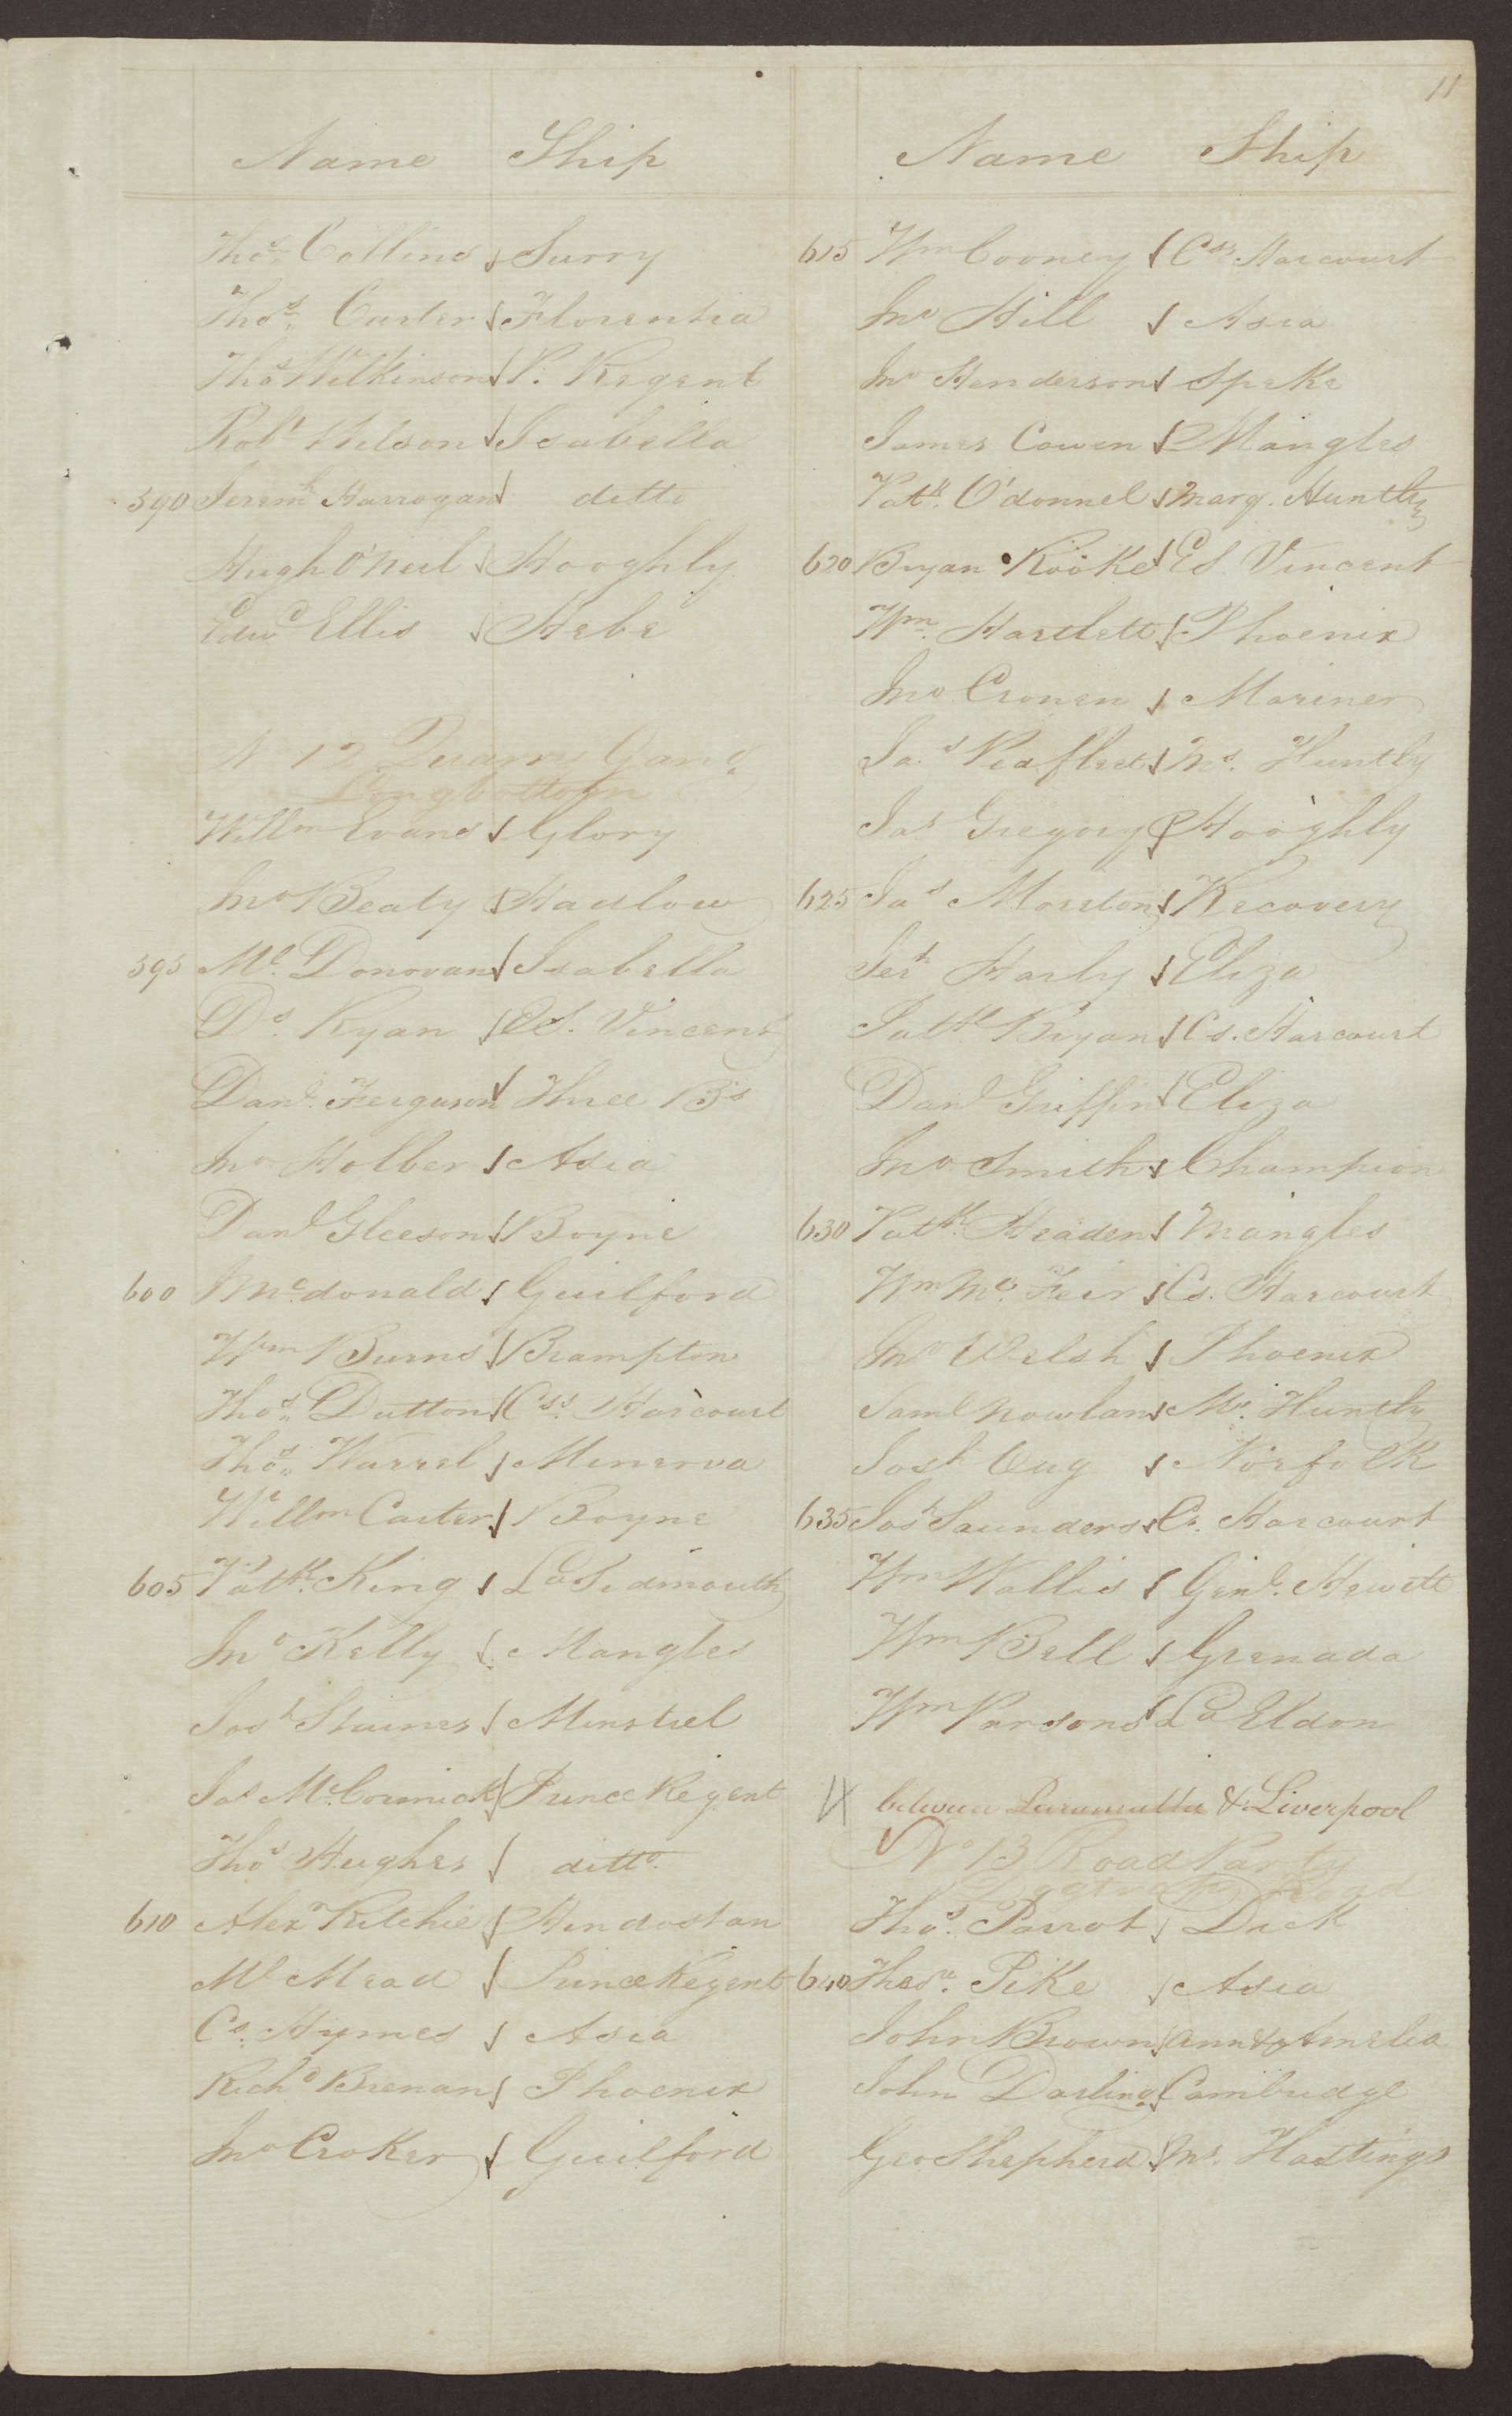 11
Name Ship
Thos. Collins Surry
Thos. Carter Florentia
Thos Wilkinson P. Regent
Robt Wilson Isabella
590 Jeremh Harrogan ditto
Hugh O'Neil Hooghly
Edwd Ellis Hebe
N 12 Quarry Gang
Longbottom
Willm Evans Glory
Jno Beaty Hadlow
595 Ml. Donovan Isabella
Ds. Ryan E S. Vincent
Danl. Ferguson Three B's
Jno Holber Asia
Danl Gleeson Boyne
600 J Mc.donald Guilford
Wm Burns Brampton
Thos. Dutton Css. Harcourt
Thos. Warrel Minerva
Willm Carter Boyne
605 Patk. King Ld Sidmouth
Jno Kelly Mangles
Josh Staines Minstrel
Jas Mc.Cormick Prince Regent
Thos Hughes ditto.
610 Alexr Ritchie Hindostan
Ml Mead Prince Regent
Cs. Hymes Asia
Richd Brenan Phoenix
Jno Croker Guilford
Name Ship
615 Wm Cooney Css Harcourt
Jno Hill Asia
Jno Henderson Speke
James Cowen Mangles
Patk. O'donnel Marq. Huntley
620 Bryan Rooke E S. Vincent
Wm. Hartlett Phoenix
Jno Cronen Mariner
Jas Peaflect Ms. Huntly
Jas Gregory Hooghly
625 Jas Morston Recovery
Jerh Harly Eliza
Patk Bryan Cs. Harcourt
Danl Griffin Eliza
Jno Smith Champion
630 Patk. Headen Mangles
Wm Mc. Feir Cs. Harcourt
Jno Welsh Phoenix
Saml Nowlan Ms. Huntly
Josh Cug Norfolk
635 Josh Saunders Cs. Harcourt
Wm Wallis Genl. Hewitt
Wm Bell Grenada
Wm Parsons Ld Eldon
between Paramatta & Liverpool
No 13 Road Party
Thos. Parrot Dick
640 Thos. Pike Asia
John Brown Ann & Amelia
John Darling Cambridge
Geo Shepherd Ms. Hastings